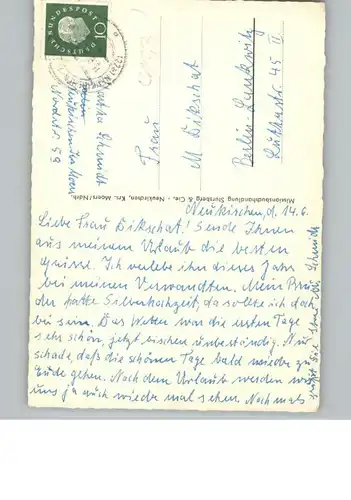 DEUTSCHE BUNDESPOST
10
Schmidt
Neukirchen Kr. Moers
Nordstr. 59
Frau
M Dikschat
Berlin-Lankwitz
Lutherstr. 45 II
Missionsbuchhandlung Stursberg & Cie. - Neukirchen, Krs. Moers/Ndrh.
Neukirchen, d. 14.6.
Liebe Frau Dikschat! Sende Ihnen
aus meinem Urlaub die besten
Grüsse. Ich verlebe ihn dieses Jahr
bei meinen Verwandten. Mein Bru
der hatte Silberhochzeit, da sollte ich doch
bei sein. Das Wetter war die ersten Tage
sehr schön, jetzt bischen unbeständig. Nur
schade, daß die schönen Tage bald wieder zu
Ende gehen. Nach dem Urlaub werden wir
uns ja auch wieder mal sehen. Nochmals
grüßt Sie Schmidt